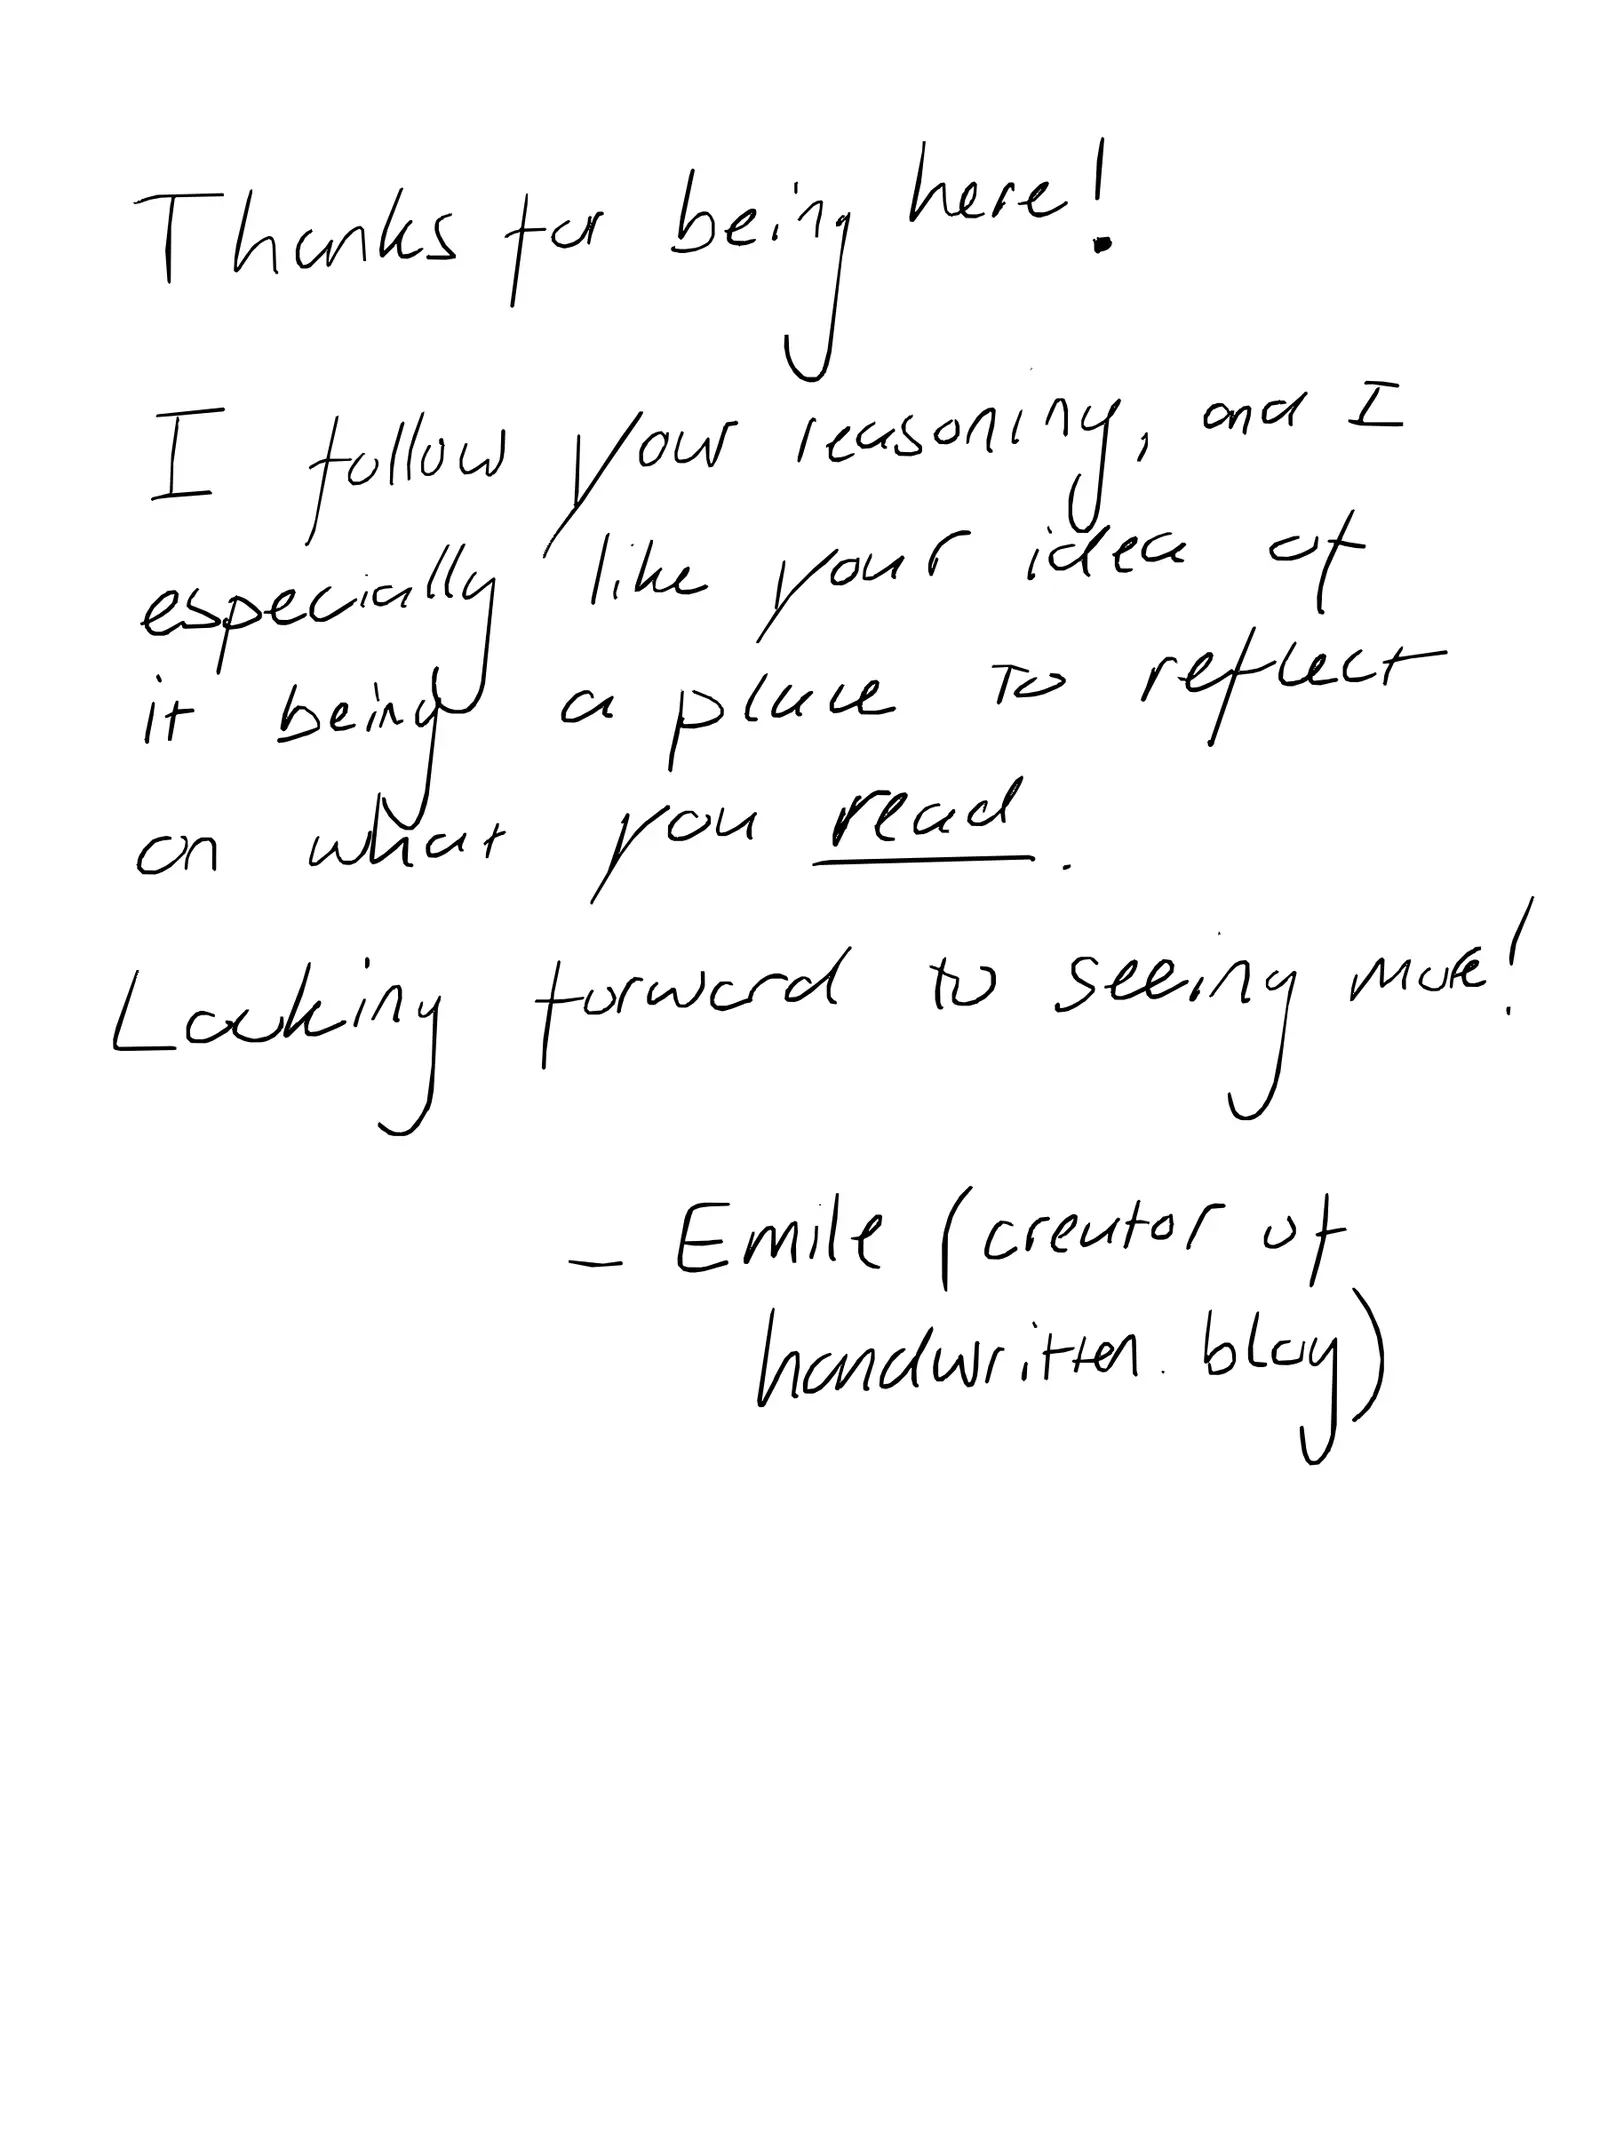 Thanks for being here!
I follow your reasoning, and I
especially like your idea of
it being a place to reflect
on what you read.
Looking forward to seeing more!
– Emile (creator of
handwritten.blog)